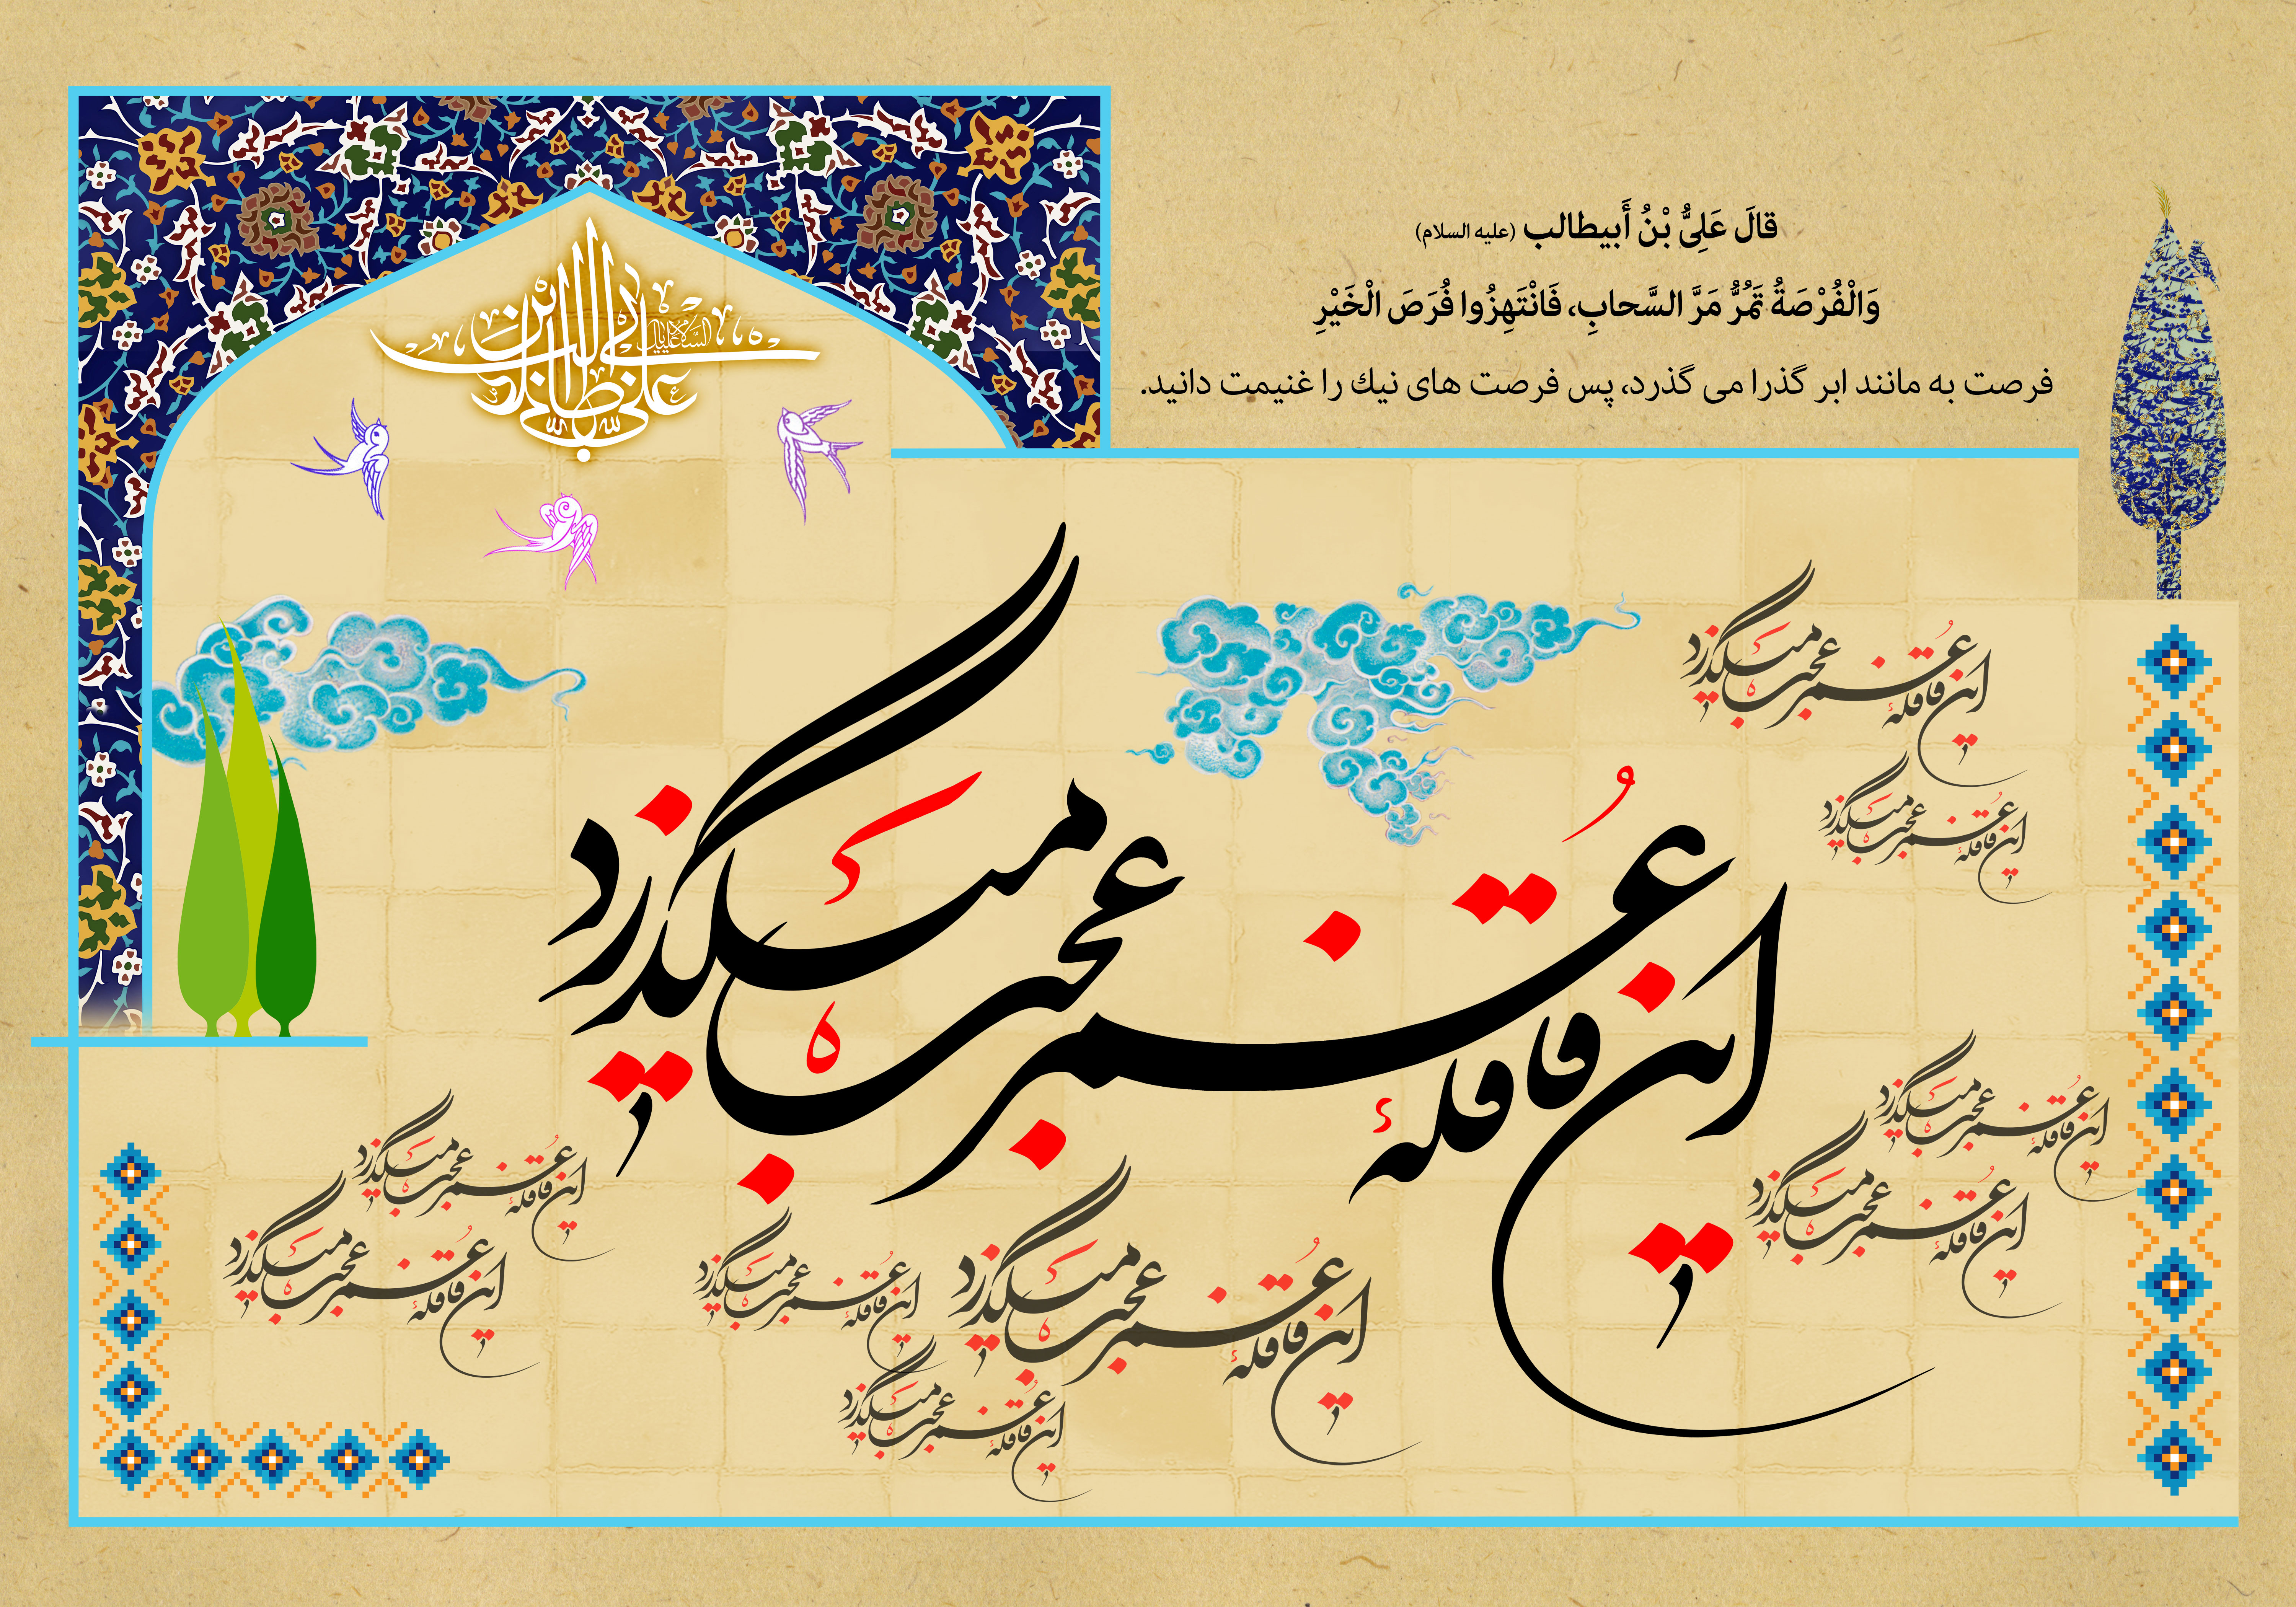 قالَ عَلِیُّ بْنُ أَبیطالب (علیه السلام)
وَالْفُرْصَةُ تَمُرُّ مَرَّ السَّحابِ، فَانْتَهِزُوا فُرَصَ الْخَیْرِ
فرصت به مانند ابر گذرا می گذرد، پس فرصت های نیك را غنیمت دانید.
علی بن ابی طالب
این قافلهٔ عُمر عجب میگذرد
این قافلهٔ عُمر عجب میگذرد
این قافلهٔ عُمر عجب میگذرد
این قافلهٔ عُمر عجب میگذرد
این قافلهٔ عُمر عجب میگذرد
این قافلهٔ عُمر عجب میگذرد
این قافلهٔ عُمر عجب میگذرد
این قافلهٔ عُمر عجب میگذرد
این قافلهٔ عُمر عجب میگذرد
این قافلهٔ عُمر عجب میگذرد